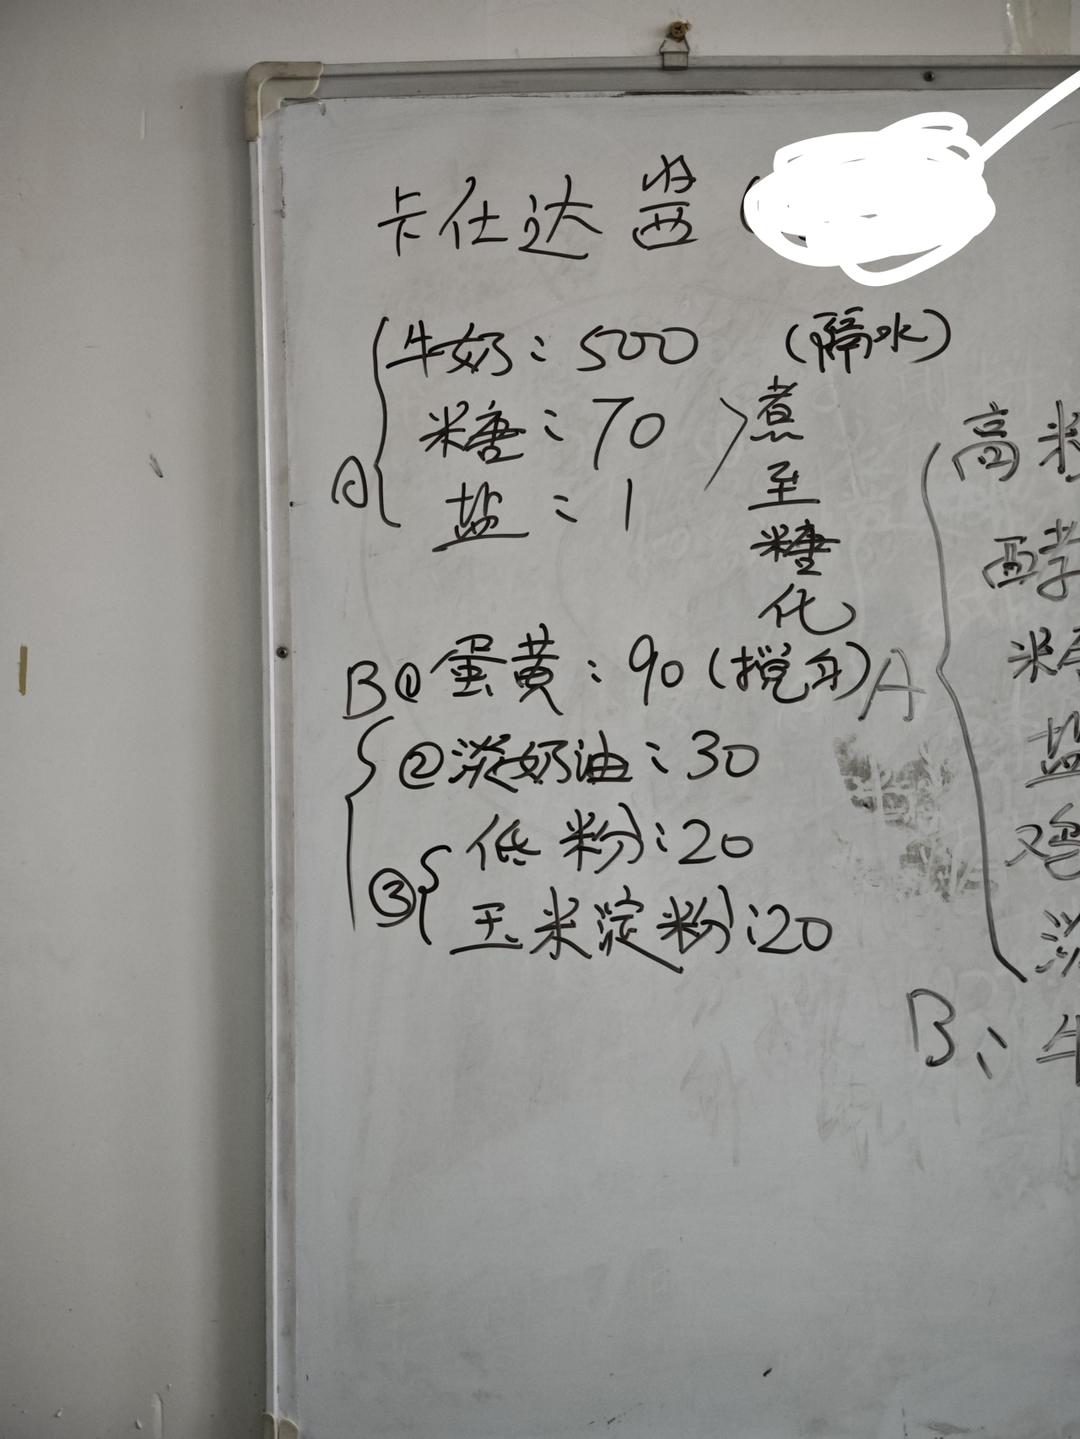 卡仕达酱(
牛奶:500 (隔水)
糖:70 煮至糖化
盐:1
B①蛋黄:90(搅匀)
②淡奶油:30
③低粉:20
玉米淀粉:20
A
高粉
酵
糖
盐
鸡
淡
B:牛